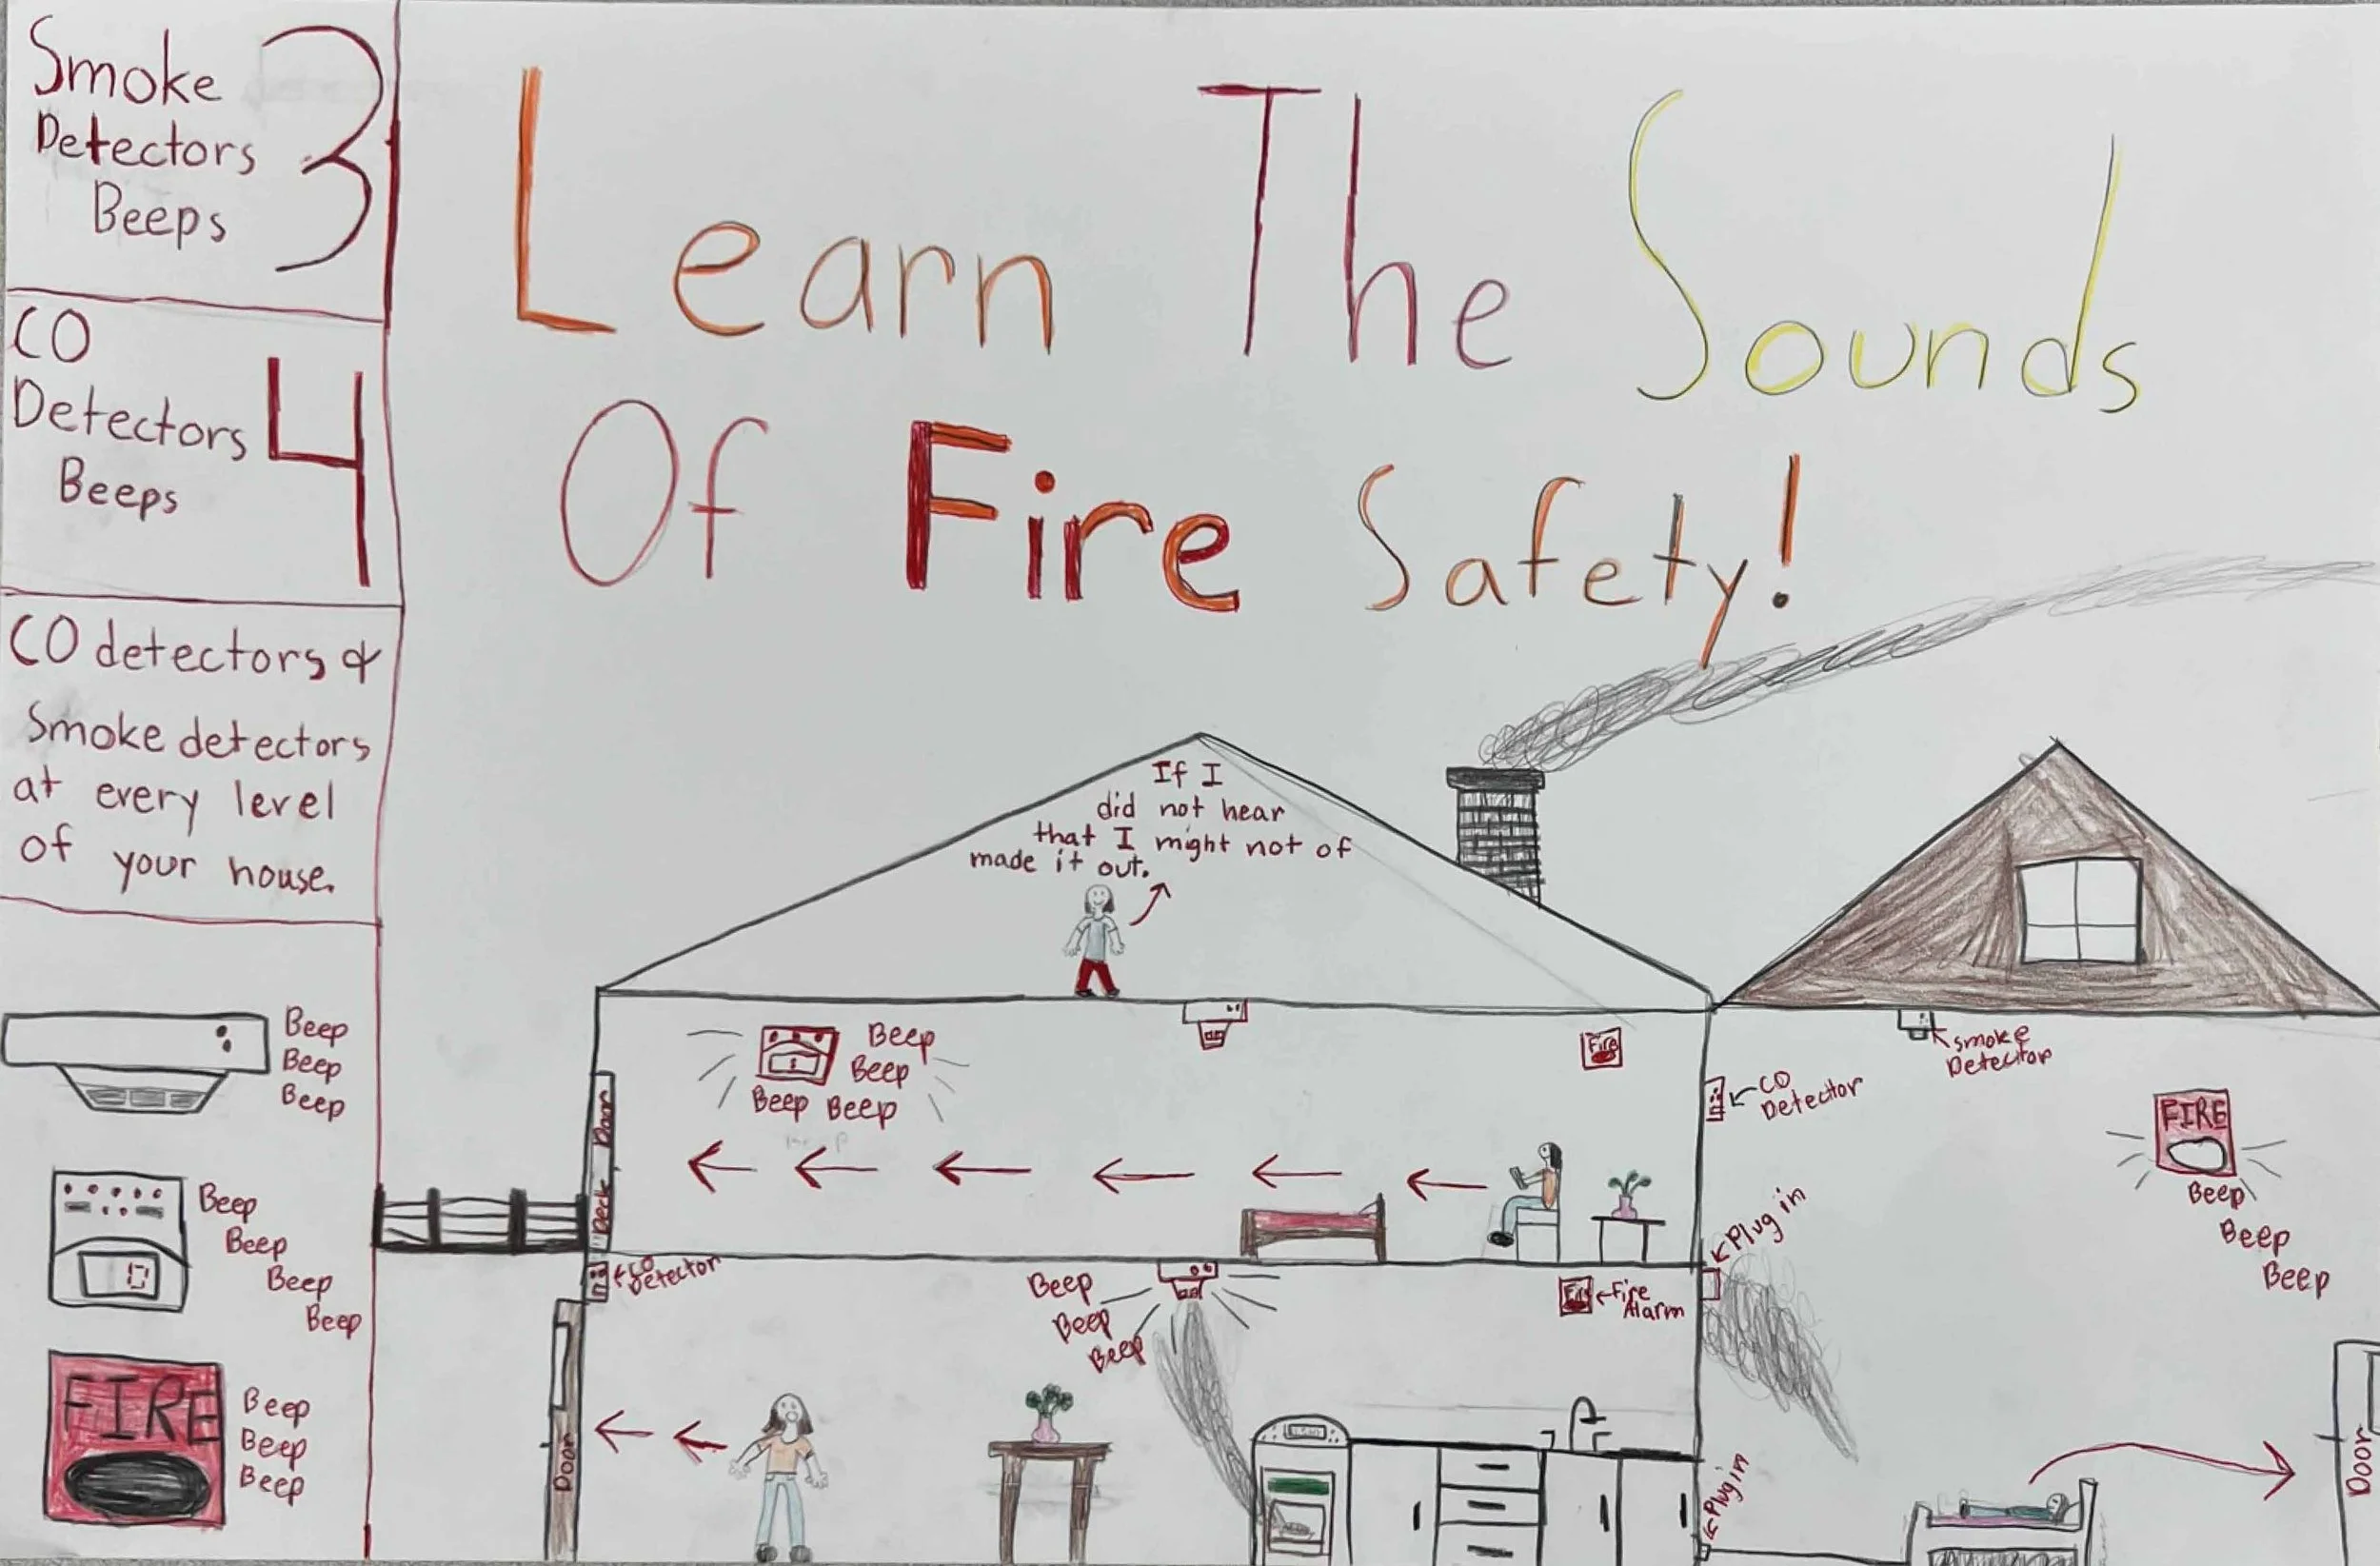 Smoke
Detectors 3
Beeps
CO
Detectors 4
Beeps
CO detectors &
Smoke detectors
at every level
of your house.
Beep
Beep
Beep
Beep
Beep
Beep
Beep
FIRE
Beep
Beep
Beep
Learn The Sounds
Of Fire Safety!
If I
did not hear
that I might not of
made it out.
Beep
Beep
Beep Beep
Fire
Deck Door
CO
Detector
Beep
Beep
Beep
Fire
Fire
Alarm
Door
Smoke
Detector
CO
Detector
FIRE
Beep
Beep
Beep
Plug in
Plug in
Door